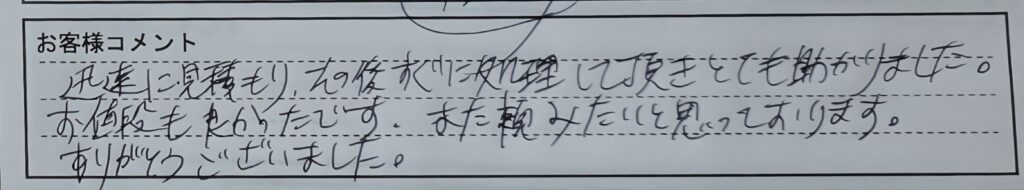 お客様コメント
迅速に見積もり、その後すぐに処理して頂きとても助かりました。
お値段も良かったです。また頼みたいと思っております。
ありがとうございました。